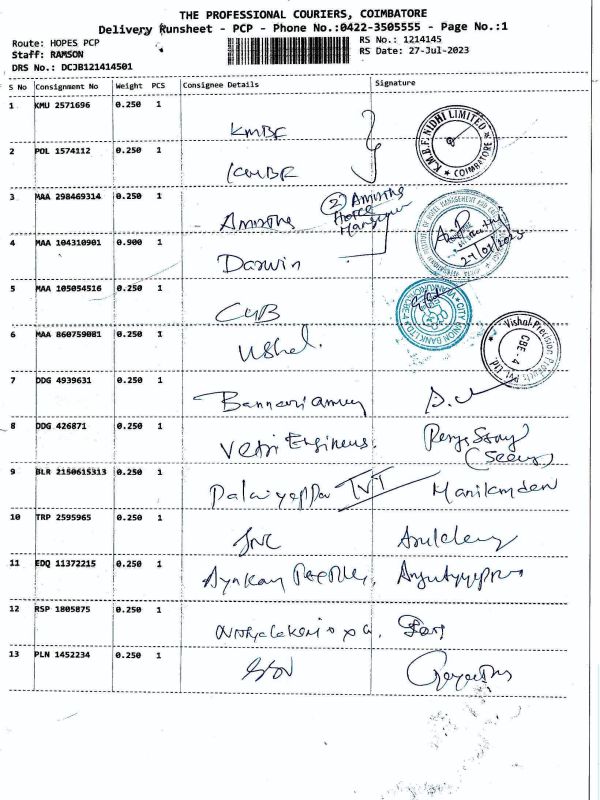 THE PROFESSIONAL COURIERS, COIMBATORE
Delivery Runsheet - PCP - Phone No.:0422-3505555 - Page No.:1
Route: HOPES PCP
RS No.: 1214145
Staff: RAMSON
RS Date: 27-Jul-2023
DRS No.: DCJB121414501
S No Consignment No Weight PCS Consignee Details Signature
1 KMU 2571696 0.250 1 KMBF
K.M.B.F. NIDHI LIMITED
COIMBATORE
2 POL 1574112 0.250 1 KMBF
3 MAA 298469314 0.250 1 Amirtha
2) Amirtha
Hotel
4 MAA 104310901 0.900 1 Darwin
5 MAA 105054516 0.250 1 CUB
CITY UNION BANK LTD
6 MAA 860759081 0.250 1 Vishal.
Vishal Precision Products Pvt. Ltd.
CBE - 4
7 DDG 4939631 0.250 1 Bannariamman
8 DDG 426871 0.250 1 Vetri Engineers.
9 BLR 2150615313 0.250 1 Palaiyappa TVT Manikanden
10 TRP 2595965 0.250 1 JNC
11 EDQ 11372215 0.250 1
12 RSP 1805875 0.250 1
13 PLN 1452234 0.250 1